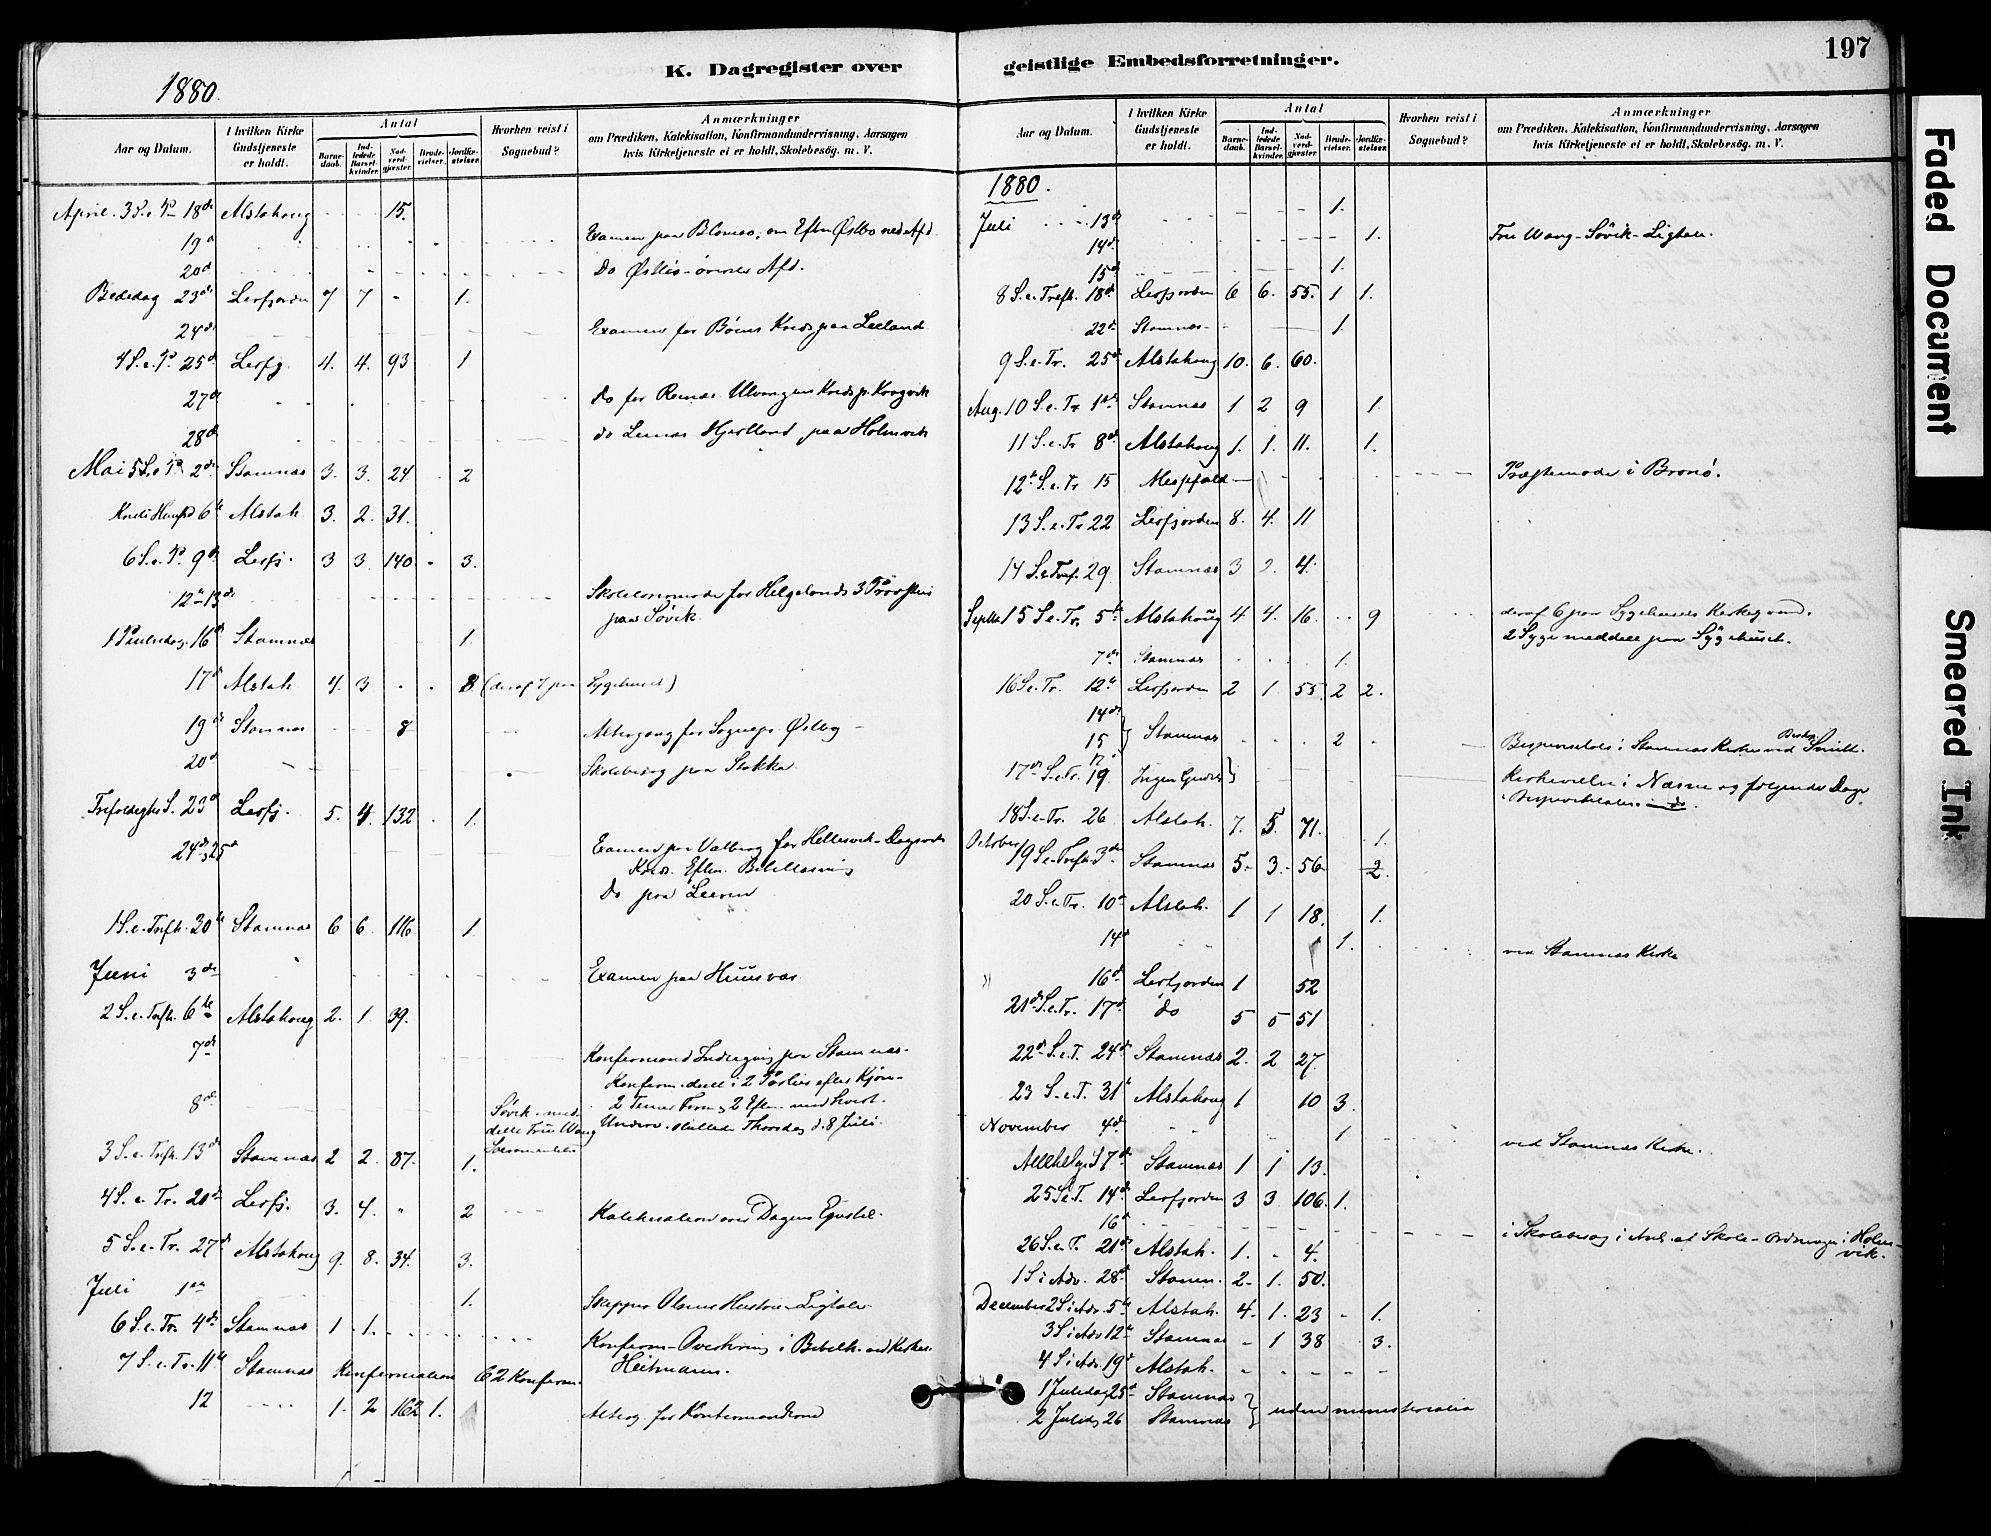 K. Dagregister over
1880.
Aar og Datum.
I hvilken Kirke Gudstjeneste er holdt.
Antal
Barne-daab.
Ind-ledede Barsel-kvinder.
Nad-verd-gjæster.
Brude-vielser.
Jordfæ-stelser.
Hvorhen reist i Sognebud?
Anmærkninger
om Prædiken, Katekisation, Konfirmandundervisning, Aarsagen
hvis Kirketjeneste ei er holdt, Skolebesøg. m. V.
April. 3 S. e. P. 18de Alstahoug 15.
19de Examen paa Blomsø, om Eftm Østbø ned Afd.
20de Do Østbø - øverste Afd.
Bededag 23de Lerfjorden 7 7 - 1.
24de Examen for Kreds paa Leeland
4 S. e. P. 25de Lerfj. 4. 4. 93 1
27de Do for Remes Ulvangens Kreds p.
28de do Leines Hjertland paa Holmvik
Mai 5 S. e. P. 2de Stamnæs 3. 3. 24. 2
Kristi Himfd 6te Alstah. 3. 2. 31.
6 S. e. P. 9de Lerfj. 3 3. 140. - 3.
12te-13de for Helgelands 3 Provstier
paa Søvik.
1 Pintsedag. 16de Stamnæs 1.
17de Alstah 4. 3 - - 8 (deraf 7 paa Sygehuset)
19de Stamnæs 8 Altergang for Østby
20de Skolebesøg paa Stokka.
Trefoldighds S. 23de Lerfj. 5. 4. 132 1.
24de, 25de Examen paa Valberg for Hellesvik - Dagsvik
Kreds. Eftm. Bibellæsning
Do paa Leeren
1 S. e. Trefh. 30te Stamnæs 6 6. 116 1.
Juni 3de Examen paa Huusvær
2 S. e. Trefh. 6te Alstahoug 2. 1. 39.
7de Konfirmand Indtegning paa Stamnæs.
Konfirm. deelt i 2 Partier efter Kjøn -
8de Søvik - med- 2 Timer Form. 2 Eftm. med hvert.
delte Fru Wang Underv. sluttede Thorsdag d. 8 Juli.
Sacramentet
3 S. e. Trefh. 13de Stamnæs 2 2. 87. 1.
4 S. e. Tr. 20de Lerfj. 3. 4. " 2 Katekisation over Dagens Epistel.
5 S. e. Tr. 27de Alstahoug 9. 8. 34. 3.
Juli 1ste 1. Skipper Olaus Ligtale.
6 S. e. Tr. 4de Stamnæs 1. 1. Konfirm - Overhøring i Bibelh. ved Kirkes.
Heitmann.
7 S. e. Tr. 11te Stamnæs Konfirmation 62 Konfirm.
12 1. 2 162 1. Alterg. for Konfirmanderne
197
geistlige Embedsforretninger.
Aar og Datum.
I hvilken Kirke Gudstjeneste er holdt.
Antal
Barne-daab.
Ind-ledede Barsel-kvinder.
Nad-verd-gjæster.
Brude-vielser.
Jordfæ-stelser.
Hvorhen reist i Sognebud?
Anmærkninger
om Prædiken, Katekisation, Konfirmandundervisning, Aarsagen
hvis Kirketjeneste ei er holdt, Skolebesøg. m. V.
1880.
Juli 13de 1.
14de 1. Fru Wang - Søvik - Ligtale.
15de 1.
8 S. e. Trefh. 18de Lerfjorden 6 6. 55. 1 1.
22de Stamnæs 1.
9 S. e. Tr. 25de Alstahoug 10. 6. 60.
Aug. 10 S. e. Tr. 1ste Stamnæs 1 2 9 1.
11 S. e. Tr 8de Alstahoug 1. 1. 11. 1.
12te S. e. Tr 15 Messfald Præstemøde i Brønø.
13 S. e. Tr 22 Lerfjorden 8. 4. 11
14 S. e. Tref. 29. Stamnæs 3 2. 4.
Septbr 15 S. e. Tr. 5te Alstahoug 4 4. 16. 9 deraf 6 paa Sygehusets Kirkegaard.
2 Syge meddelt paa Sygehuset.
7de Stamnæs 1.
16 S. e. Tr. 12te Lerfjorden 2 1 55. 2 2.
14de
15 } Stamnæs 2 Bispevisitats i Stamnæs Kirke ved Biskop Smitt.
17de S. e. Tr. 19 Ingen Gudst } Kirkevielse i Næsne og følgende Dage
Bispevisitats i do.
18 S. e. Tr. 26 Alstah. 7. 5. 71. 1.
October 19 S. e. Trefh. 3de Stamnæs 5. 3. 56 2.
20 S. e. Tr. 10de Alstah. 1 1 18. 1.
14de 1. ved Stamnæs Kirke
16de Lerfjorden 1 52
21de S. e. Tr. 17de do 5 5 51
22de S. e. T. 24de Stamnæs 2. 2 27.
23 S. e. T. 31te Alstahoug 1 10 3.
November 4de 1 ved Stamnæs Kirke.
Allehelg. S. 7de Stamnæs 1 1 13.
25 S. e. T. 14de Lerfjorden 3 3. 106. 1.
16de i Skolebesøg i Anl. af Skole-Ordningen i Holm-
vik.
26 S. e. T. 21de Alstah. 1. - 4.
1 S. i Adv. 28de Stamn. 2. 1. 50.
December 2 S. i Adv. 5te Alstah. 4. 1. 23 - 1.
3 S. i Adv 12te Stamnæs - 1 38 3.
4 S. i Adv. 19de Alstah.
1 Juledag 25de Stamnæs
2 Juledag 26 Stamnæs } uden ministerialia
Faded Document
Smeared Ink